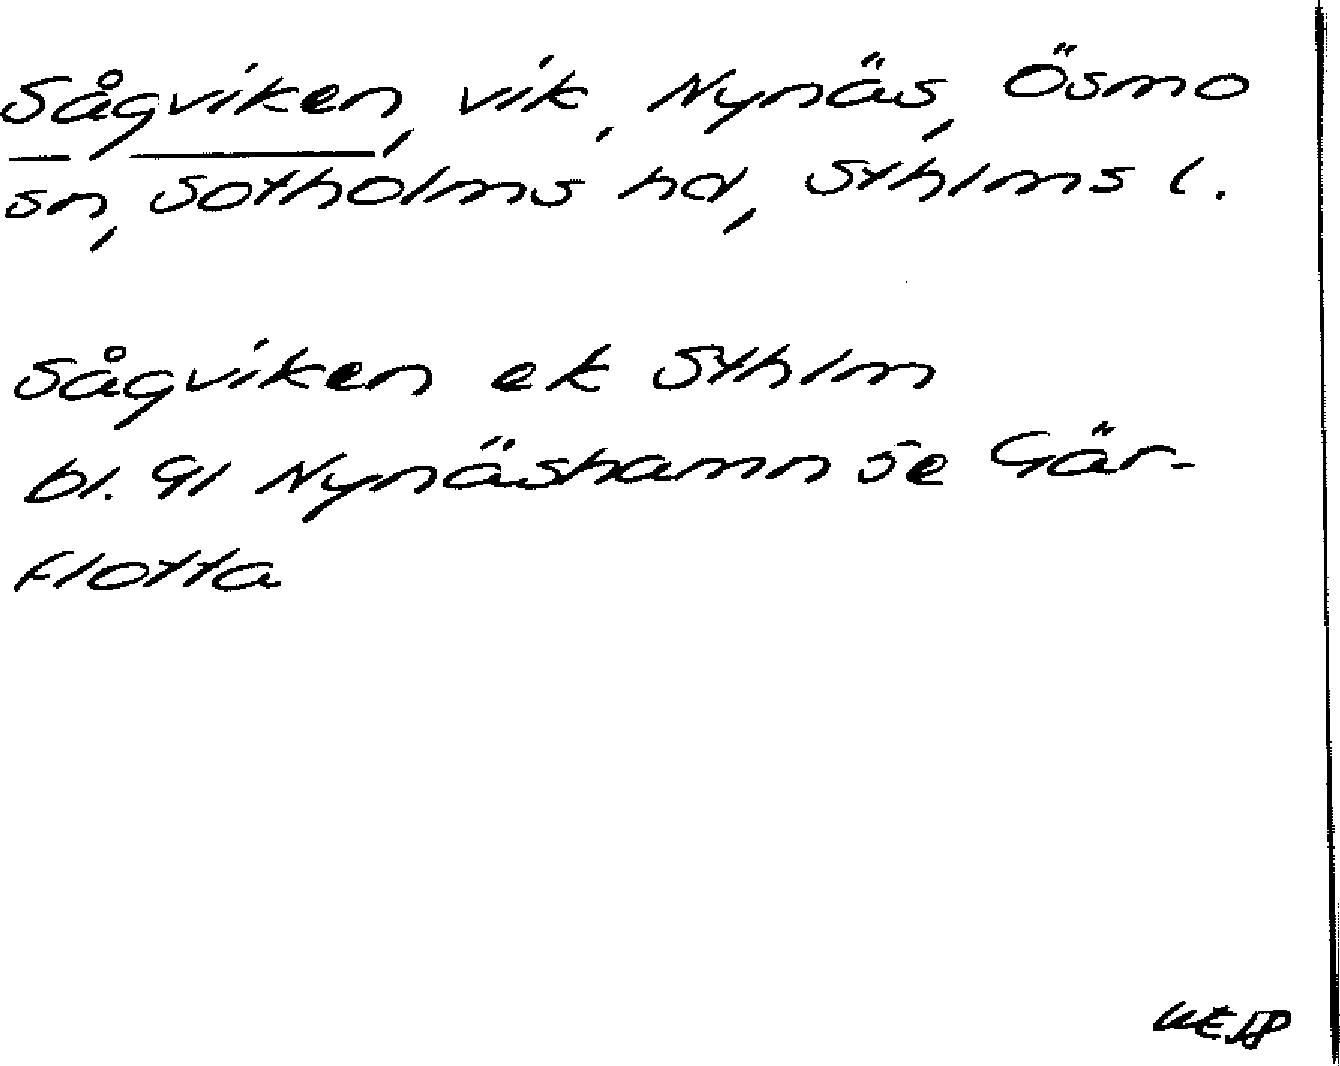 Sågviken, vik, Nynäs, Ösmo
sn, Sotholms hd, Sthlms l.
Sågviken ek Sthlm
bl. 91 Nynäshamn SE Går-
flotta